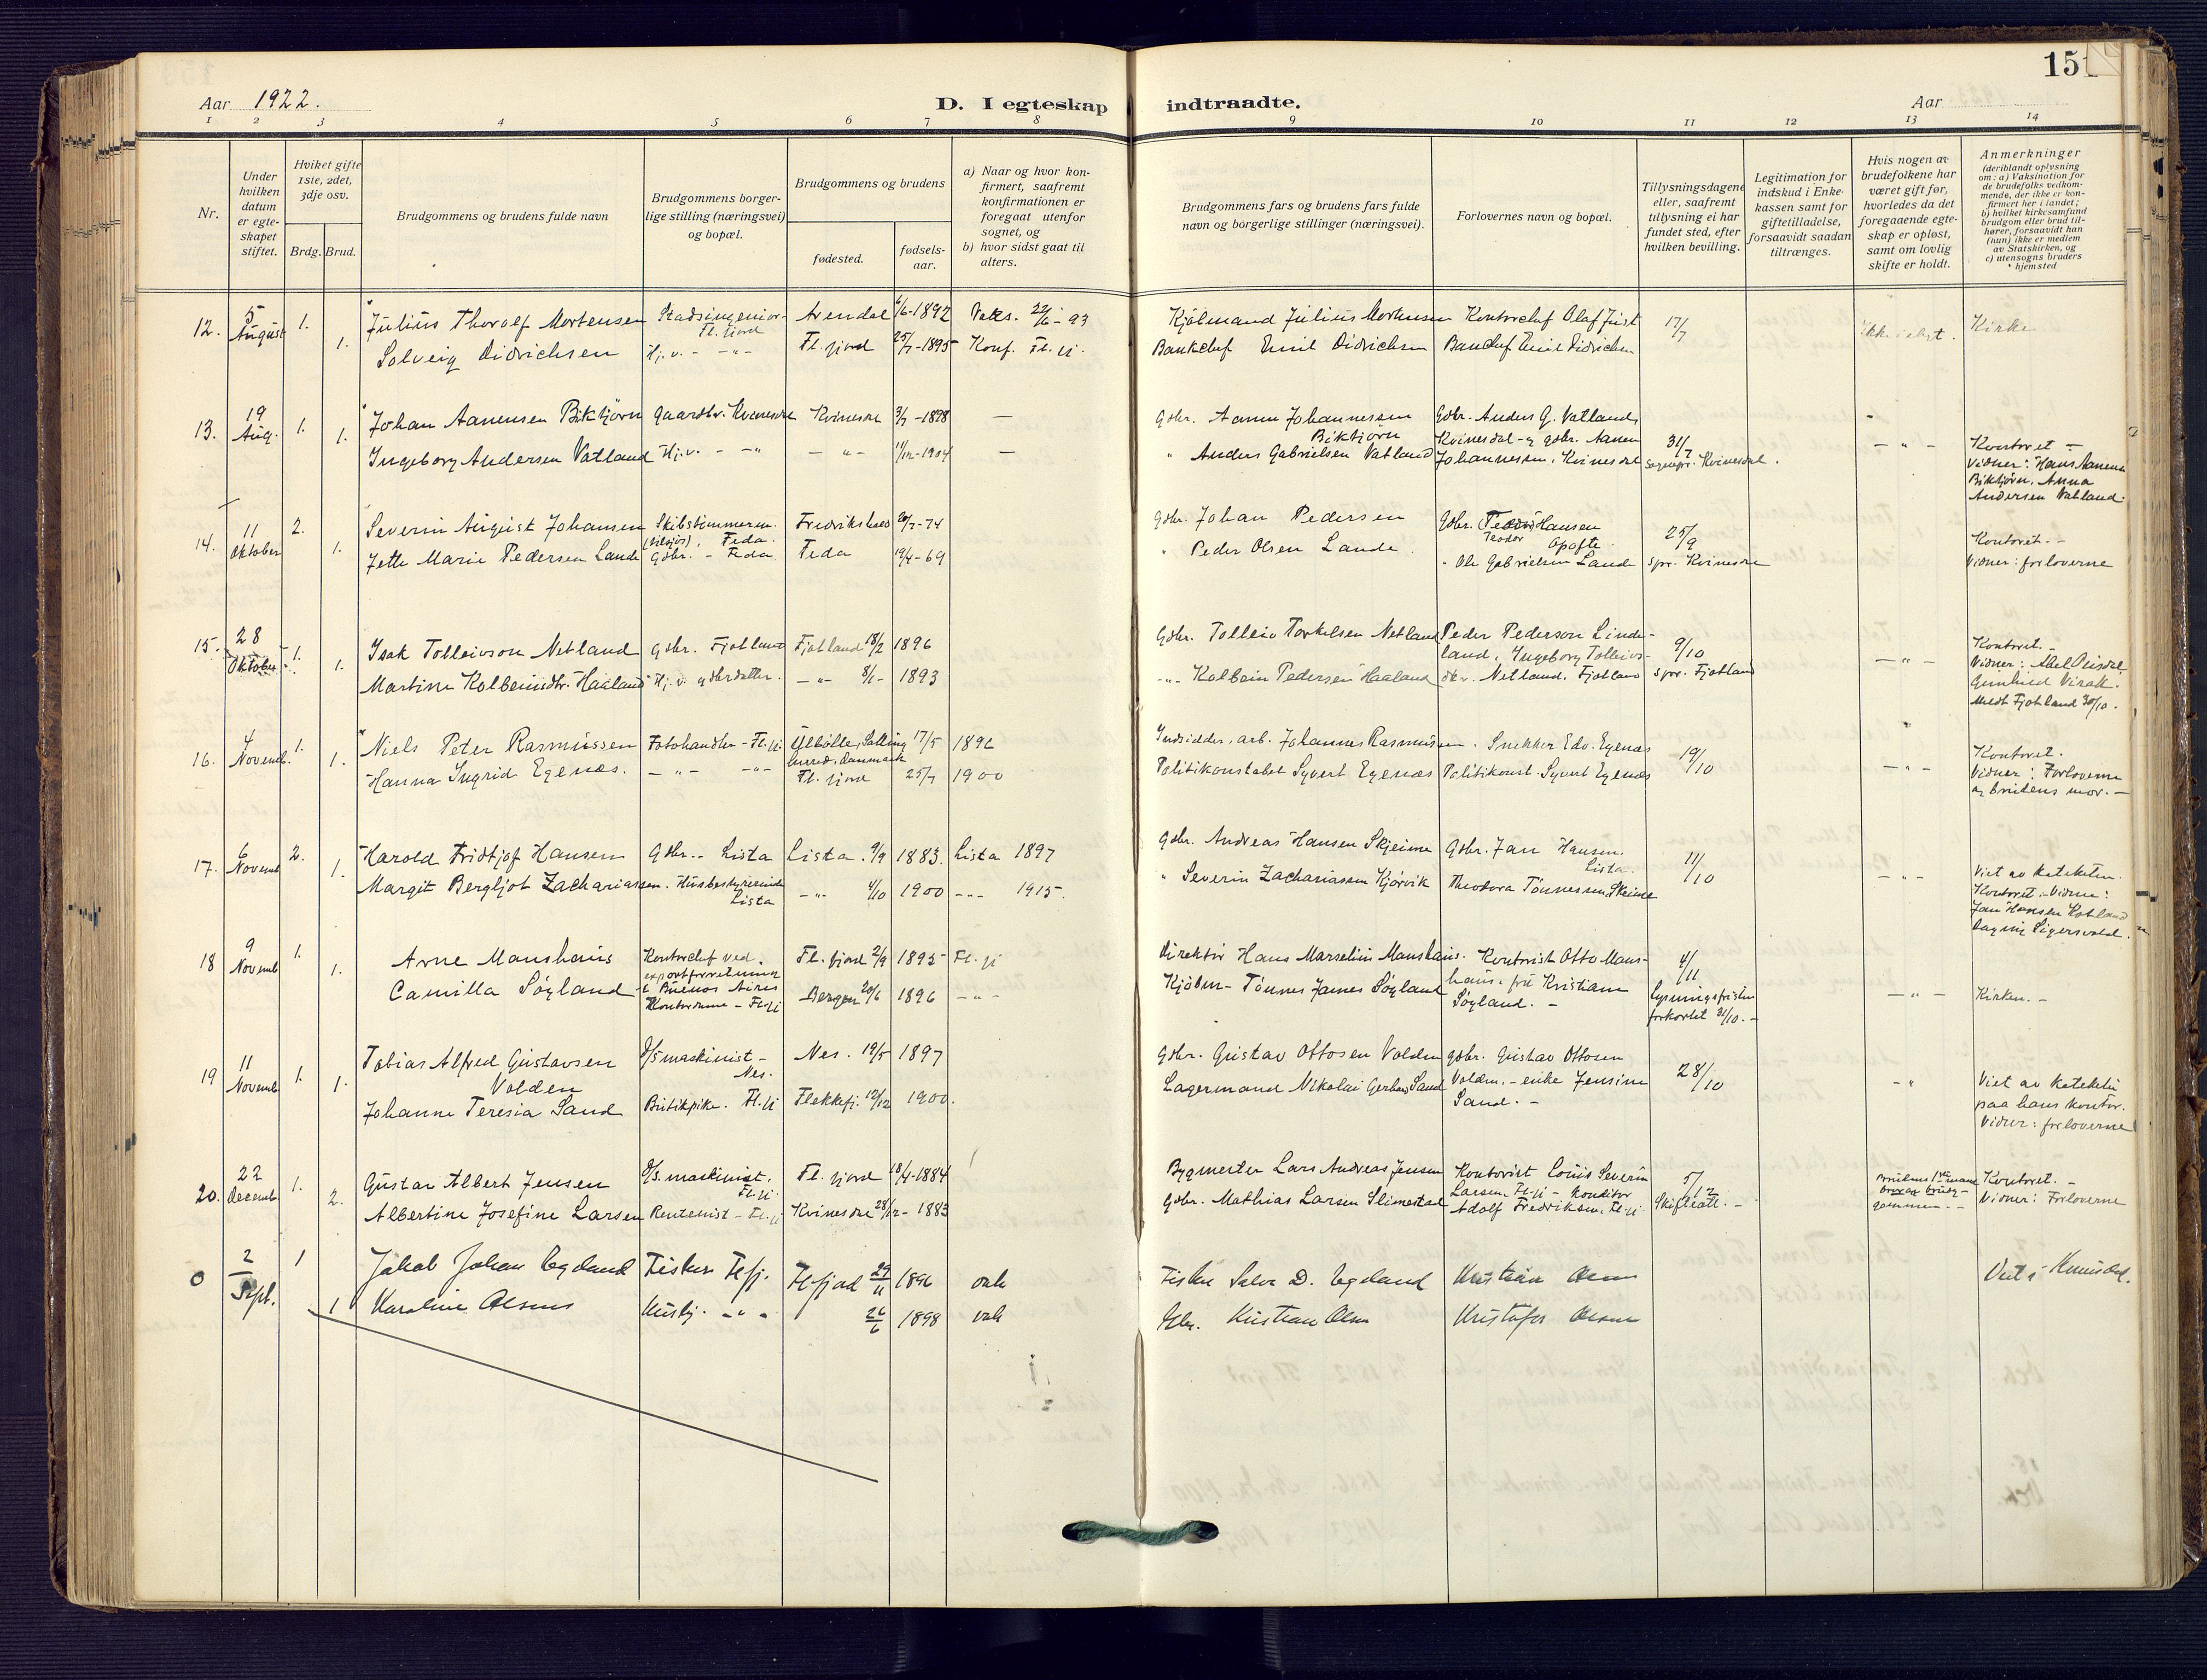 Aar 1922.
D. I egteskap indtraadte.
Aar
151
1 2 3 4 5 6 7 8 9 10 11 12 13 14
Nr.
Under hvilken datum er egteskapet stiftet.
Hvilket gifte 1ste, 2det, 3dje osv.
Brdg. Brud.
Brudgommens og brudens fulde navn
Brudgommens borgerlige stilling (næringsvei) og bopæl.
Brudgommens og brudens
fødested.
fødsels-aar.
a) Naar og hvor konfirmert, saafremt konfirmationen er foregaat utenfor sognet, og
b) hvor sidst gaat til alters.
Brudgommens fars og brudens fars fulde navn og borgerlige stillinger (næringsvei).
Forlovernes navn og bopæl.
Tillysningsdagene eller, saafremt tillysning ei har fundet sted, efter hvilken bevilling.
Legitimation for indskud i Enkekassen samt for giftetilladelse, forsaavidt saadan tiltrænges.
Hvis nogen av brudefolkene har været gift før, hvorledes da det foregaaende egteskap er opløst, samt om lovlig skifte er holdt.
Anmerkninger
(deriblandt oplysning om: a) Vaksination for de brudefolks vedkommende, der ikke er konfirmert her i landet; b) hvilket kirkesamfund brudgom eller brud tilhører, forsaavidt han (hun) ikke er medlem av Statskirken, og c) utensogns bruders hjemsted
12. 5 August 1. Julius Thorolf Mortensen Stadsingeniør Fl.fjord Arendal 6/6-1892 Vaks. 22/6-93 Kjølmand Julius Mortensen Kontorchef Olaf Just 17/7 Kirke
1. Solveig Didrichsen Hj.v. - -"- Fl.fjord 25/7-1895 Konf. Fl.fj. Bankchef Emil Didrichsen Bankchef Emil Didrichsen
13. 19 Aug. 1. Johan Aanensen Birktjørn Gaardbr. Kvinesdal Kvinesdal 3/7-1898 — Gdbr. Aanen Johannessen Birktjørn Gdbr. Anders G. Vatland, Kvinesdal - og gdbr. Aanen Johannessen, Kvinesdal 31/7 Sognepr. Kvinesdal. -"- Kontoret -
1. Ingeborg Andersen Vatland Hj.v. - -"- -"- 11/12-1904 — " Anders Gabrielsen Vatland Vidner: Hans Aanens. Birktjørn, Anna Andersen Vatland.
14. 11 Oktober 2. Severin August Johansen Skibstømmerm. Feda. Fredrikshald 20/7-74 Gdbr. Johan Pedersen Gdbr. Teodor Hansen Opofte 25/9 Spr. Kvinesdal Kontoret. -
1. Jette Marie Pedersen Lande Gdbr. - Feda Feda 19/4-69 " Peder Olsen Lande. " Ole Gabrielsen Lande Vidner: forloverne
15. 28 Oktober 1. Isak Tolleivson Netland Gdbr. Fjotland Fjotland 18/2 1896 Gdbr. Tolleiv Torkelsen Netland Peder Pederson Lindeland, Ingeborg Tolleivsdtr. Netland, Fjotland 9/10 spr. Fjotland -"- Kontoret. -
1. Martine Kolbeinsdtr. Haaland Hj.v. gdbrdatter. -"- 8/1- 1893 -"- Kolbein Pedersen Haaland Vidner: Abel Gunhild Virak. Medt Fjotland 30/10.
16. 4 Novemb. 1. Niels Peter Rasmussen Fotohandler - Fl.fj. Ølbølle, Salling herred, Danmark 17/5 1896 Indsidder, arb. Johannes Rasmussen. Snekker Edv. Egenæs 19/10 -"- Kontoret.
1. Hanna Ingrid Egenæs. -"- -"- Fl.fjord 25/7 1900 Politikonstabel Syvert Egenæs Politikonst. Syvert Egenæs Vidner: Forloverne og brudens mor. -
17. 6 Novemb 2. Harold Fridtjof Hansen Gdbr. - Lista Lista 9/9 1883. Lista 1897 Gdbr. Andreas Hansen Skjeime Gdbr. Jan Hansen. Lista. 11/10 -"- Viet av kateketen.
1. Margit Bergljot Zachariassen. Husbestyrerinde Lista -"- 4/10 1900 -"- 1915. " Severin Zachariassen Kjørvik Theodora Tønnessen, Skeime Kontoret - Vidner: Jan Hansen Dagny Sigersvold.
18 9 Novemb 1. Arne Manshaus Kontorchef ved exportforretning i Buenos Aires Fl.fjord 2/9 1895 Fl.fj Direktør Hans Marselius Manshaus. Kontorist Otto Manshaus, fru Kristiane Søyland. - 4/11 Lysningsfristen forkortet 31/10. - -"- Kirken. -
1. Camilla Søyland Kontordame - Fl.fj Bergen 20/6 1896 -"- Kjøbm- Tønnes James Søyland
19 11 Novemb 1. Tobias Alfred Gustavsen Volden D/S maskinist - Nes. Nes. 19/5 1897 Gdbr. Gustav Ottosen Volden gdbr. Gustav Ottosen Volden, - enke Jensine Sand. - 28/10 -"- Viet av kateketen paa hans kontor.
1. Johanne Teresia Sand Butikpike. Fl.fj Flekkefj. 12/12 1900. Lagermand Nikolai Gerhard Sand Vidner: forloverne
20. 22 Decemb 1. Gustav Albert Jensen D/S. maskinist. Fl.fj. Fl.fjord 18/4-1884 Bygmester Lars Andreas Jensen Kontorist Louis Severin Larsen Fl.fj - Konditor Adolf Fredriksen, Fl.fj 5/12 Skifteatt. - Kontoret. -
2. Albertine Josefine Larsen Rentenist - Fl.fj Kvinesdal 28/12-1883 Gdbr. Mathias Larsen Slimestad Vidner: Forloverne
0 2/Sept. 1 Jakob Johan Egeland Fisker Flfj. Flfjord 29/11 1896 vak Fisker Salve D. Egeland Kristian Olsen Viet i Kvinesdal.
1 Karoline Olsens Huslj. -"- 26/6 1898 vak Gbr. Kristian Olsen Kristofer Olsen